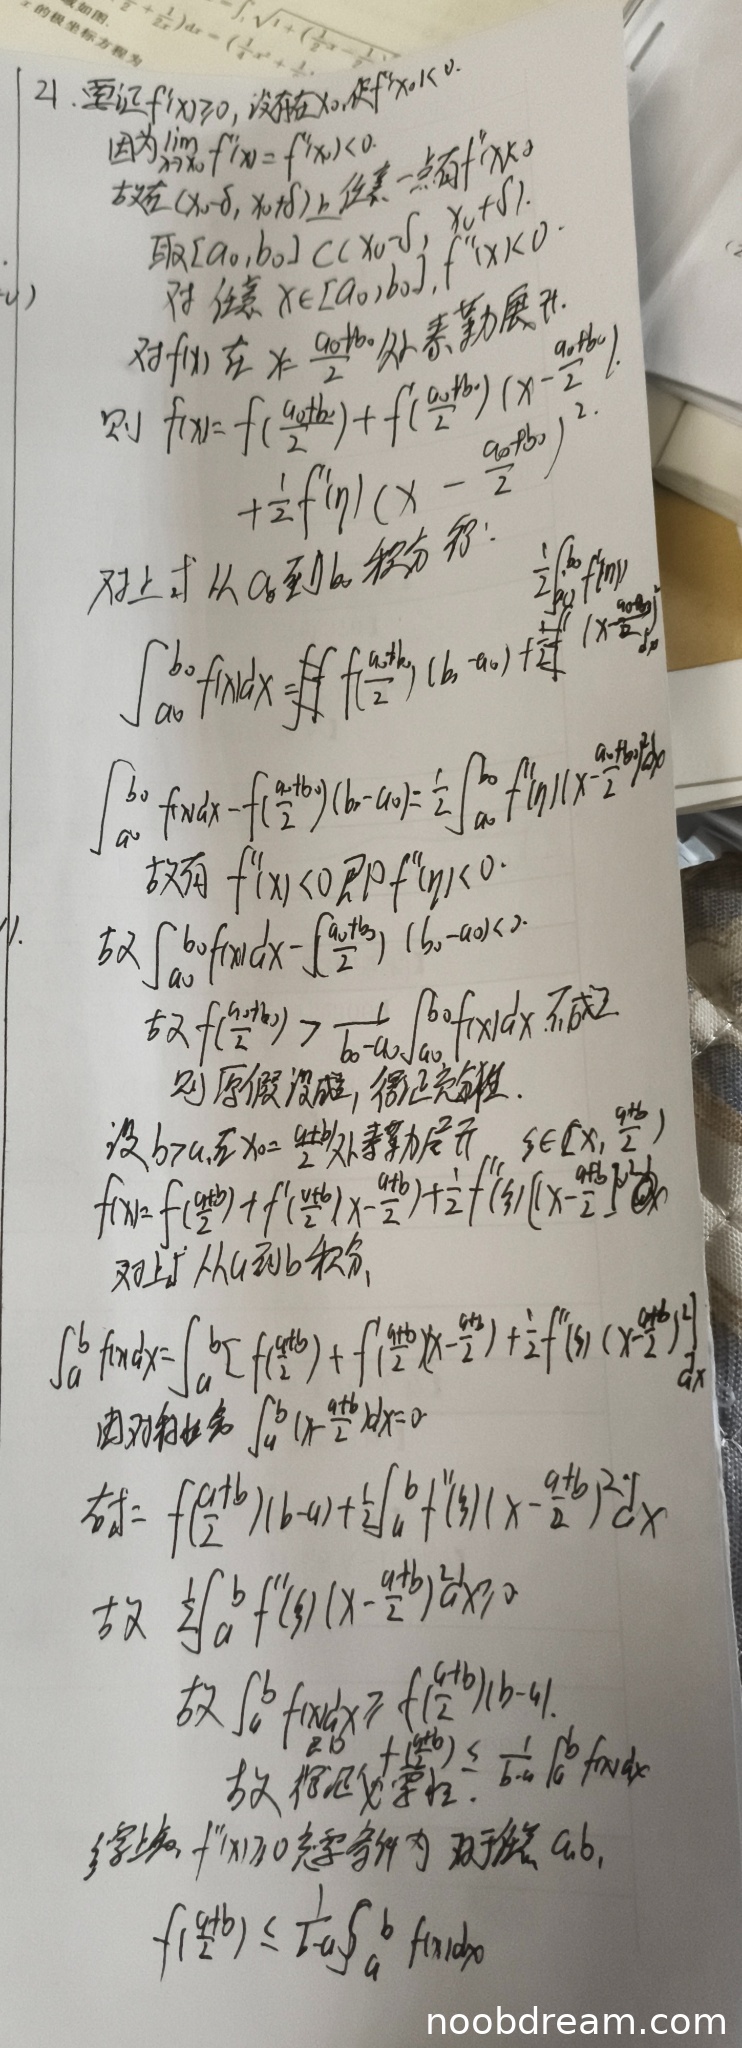 21. 要证f''(x)≥0, 设存在x₀,使f''(x₀)<0.
因为lim x→x₀ f''(x)=f''(x₀)<0.
故在(x₀-δ, x₀+δ)上任意一点有f''(x)<0
取[a₀,b₀]⊂(x₀-δ, x₀+δ).
对任意x∈[a₀,b₀], f''(x)<0.
对f(x)在x=(a₀+b₀)/2处泰勒展开.
则 f(x)=f((a₀+b₀)/2)+f'((a₀+b₀)/2)(x-(a₀+b₀)/2)
+1/2 f''(η)(x-(a₀+b₀)/2)².
对上式从a₀到b₀积分得:
∫_{a₀}^{b₀} f(x)dx= f((a₀+b₀)/2)(b₀-a₀)+1/2∫_{a₀}^{b₀} f''(η)(x-(a₀+b₀)/2)²dx
∫_{a₀}^{b₀} f(x)dx-f((a₀+b₀)/2)(b₀-a₀)=1/2∫_{a₀}^{b₀} f''(η)(x-(a₀+b₀)/2)²dx
故有 f''(x)<0 即f''(η)<0.
故∫_{a₀}^{b₀} f(x)dx-f((a₀+b₀)/2)(b₀-a₀)<0.
故f((a₀+b₀)/2)>1/(b₀-a₀)∫_{a₀}^{b₀} f(x)dx 不成立
则原假设成立, 得证充分性.
设b>a,在x₀=(a+b)/2处泰勒展开 ξ∈(x, (a+b)/2)
f(x)=f((a+b)/2)+f'((a+b)/2)(x-(a+b)/2)+1/2 f''(ξ)[(x-(a+b)/2)]²
对上式从a到b积分,
∫_a^b f(x)dx=∫_a^b[f((a+b)/2)+f'((a+b)/2)(x-(a+b)/2)+1/2 f''(ξ)(x-(a+b)/2)²]dx
由对称性知 ∫_a^b(x-(a+b)/2)dx=0
右式= f((a+b)/2)(b-a)+1/2∫_a^b f''(ξ)(x-(a+b)/2)²dx
故 1/2∫_a^b f''(ξ)(x-(a+b)/2)²dx≥0
故∫_a^b f(x)dx≥f((a+b)/2)(b-a).
即 f((a+b)/2)≤1/(b-a)∫_a^b f(x)dx
故得证必要性.
综上知, f''(x)≥0充要条件为 对于任意a,b,
f((a+b)/2)≤1/(b-a)∫_a^b f(x)dx
noobdream.com